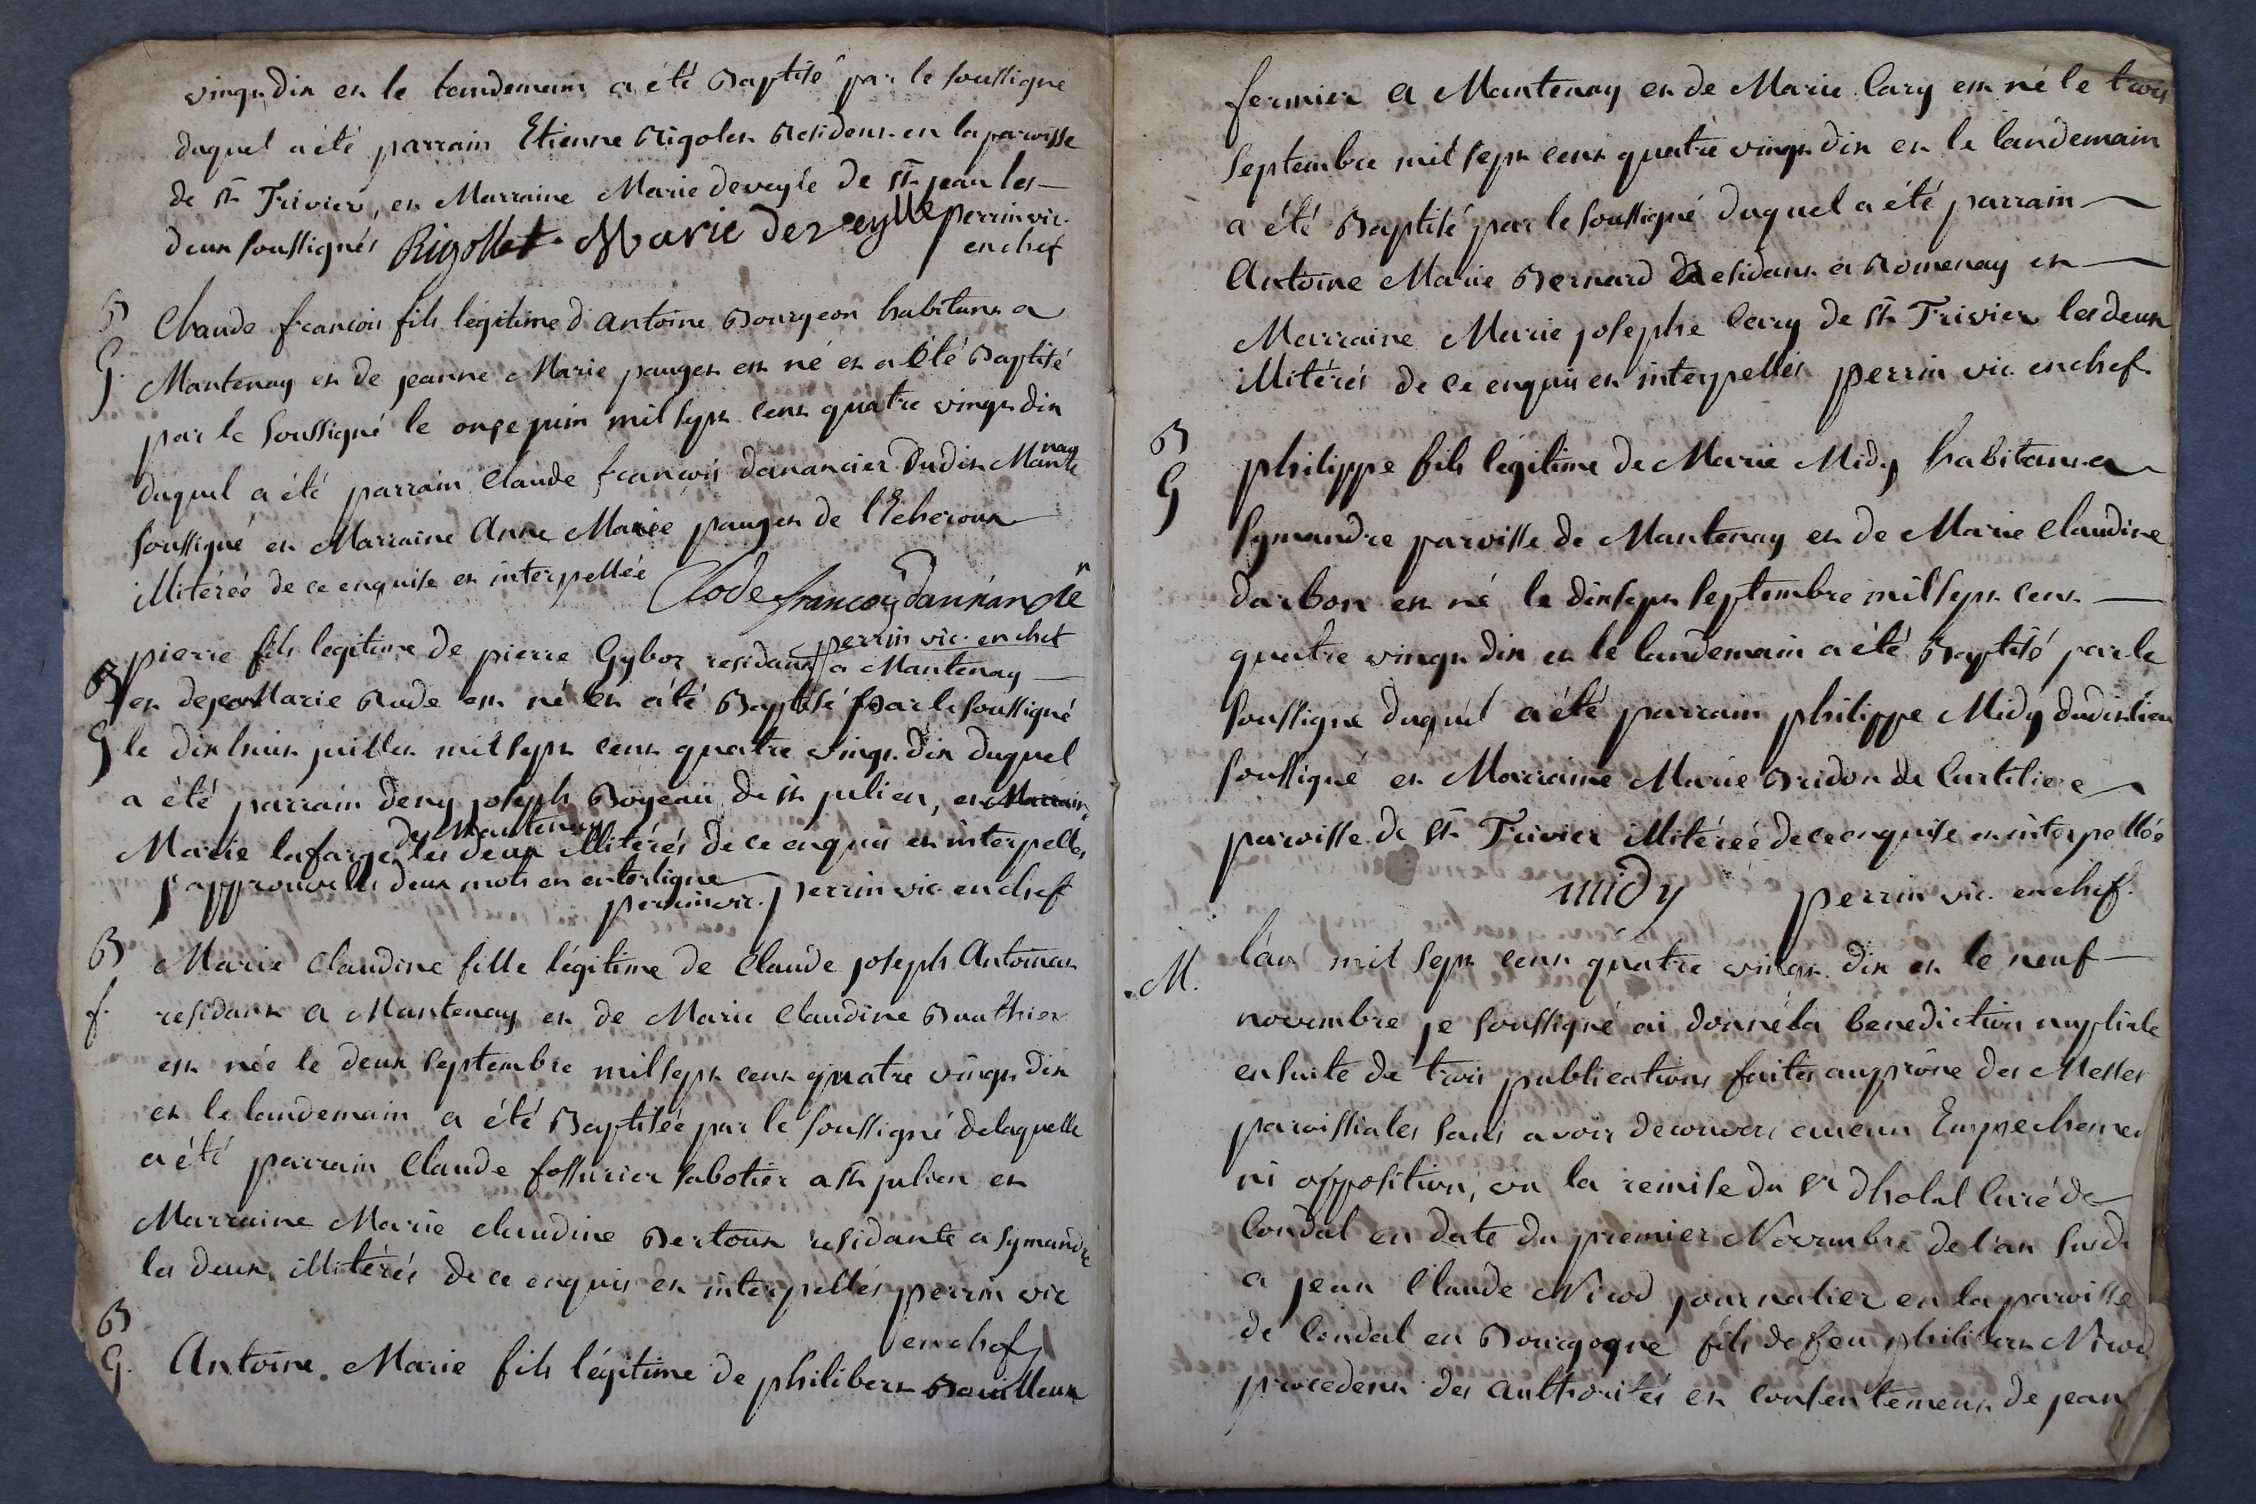 vingt dix et le landemain a été Baptisé par le soussigné
duquel a été parrain Etienne Rigolet Residant en la paroisse
de St Trivier, et Marraine Marie deveyle de St jean les
deux soussignés Rigollet Marie deveylle perrin vic.
en chef
B
G.
Claude francois fils légitime d'antoine Bourgeon habitant a
Mantenay et de jeanne Marie pauget est né et a été Baptisé
par le soussigné le onze juin mil sept cent quatre vingt dix
duquel a été parrain Claude francois danancier dudit Mante
nay
soussigné et Marraine Anne Marie pauget de l'Echeroux
illitérée de ce enquise et interpellée Clode francois dannande
perrin vic. en chef
B
G
pierre fils legitime de pierre Gyboz residant a Mantenay
et de jean Marie Rude est né et été Baptisé par le soussigné
le dix huit juillet mil sept cent quatre vingt dix duquel
a été parrain deny joseph Boyeau de St julien, et Marraine
de Mantenay
Marie lafarge les deux illitérés de ce enquis et interpellés
j'approuve les deux mots en enterligne
perrin vic. perrin vic. en chef
B
f.
Marie Claudine fille légitime de Claude joseph Antoinat
residant a Mantenay et de Marie Claudine Bauthier
est née le deux septembre mil sept cent quatre vingt dix
et le landemain a été Baptisée par le soussigné delaquelle
a été parrain Claude fossurier sabotier a St julien et
Marraine Marie claudine Bertoux residante a symandre
les deux illitérés de ce enquis et interpellés perrin vic
en chef
B
G.
Antoine Marie fils légitime de philibert Bavilleux
fermier a Mantenay et de Marie Cary est né le trois
septembre mil sept cent quatre vingt dix et le landemain
a été Baptisé par le soussigné duquel a été parrain
Antoine Marie Bernard Residant a Romenay et
Marraine Marie josephe Cary de St Trivier les deux
illitérés de ce enquis et interpellés perrin vic. en chef.
B
G
philippe fils légitime de Marie Midy habitant a
symandre paroisse de Mantenay et de Marie Claudine
darbon est né le dix sept septembre mil sept cent
quatre vingt dix et le landemain a été Baptisé par le
soussigné duquel a été parrain philippe Midy dudit lieu
soussigné et Marraine Marie Bridon de Curtiliere
paroisse de St Trivier illitérée de ce enquise et interpellée
midy perrin vic. en chef.
M.
l'an mil sept cent quatre vingt dix et le neuf
novembre je soussigné ai donné la benediction nuptiale
ensuite de trois publications faites au prône des Messes
paroissiales sans avoir decouvert aucun Empechement
ni opposition, vu la remise du Sr dholal Curé de
Condal en date du premier Novembre de l'an susdit
a jean Claude Nivod journalier en la paroisse
de Condal en Bourgogne fils de feu philibert Nivod
procedent des aulthorités et consentement de jean